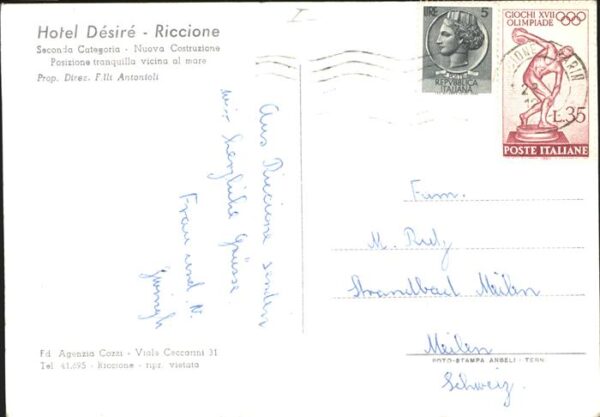 Hotel Désiré - Riccione
Seconda Categoria - Nuova Costruzione
Posizione tranquilla vicina al mare
Prop. Direz. F.lli Antonioli
LIRE 5
REPVBBLICA
ITALIANA
GIOCHI XVII
OLIMPIADE
L.35
POSTE ITALIANE
Aus Riccione senden
wir herzliche Grüsse
Frau und
Fam.
M.
Strandbad Meilen
Meilen
Schweiz.
Fd. Agenzia Cozzi - Viale Ceccarini 31
Tel 41.695 - Riccione - ripr. vietata
FOTO-STAMPA ANGELI - TERNI